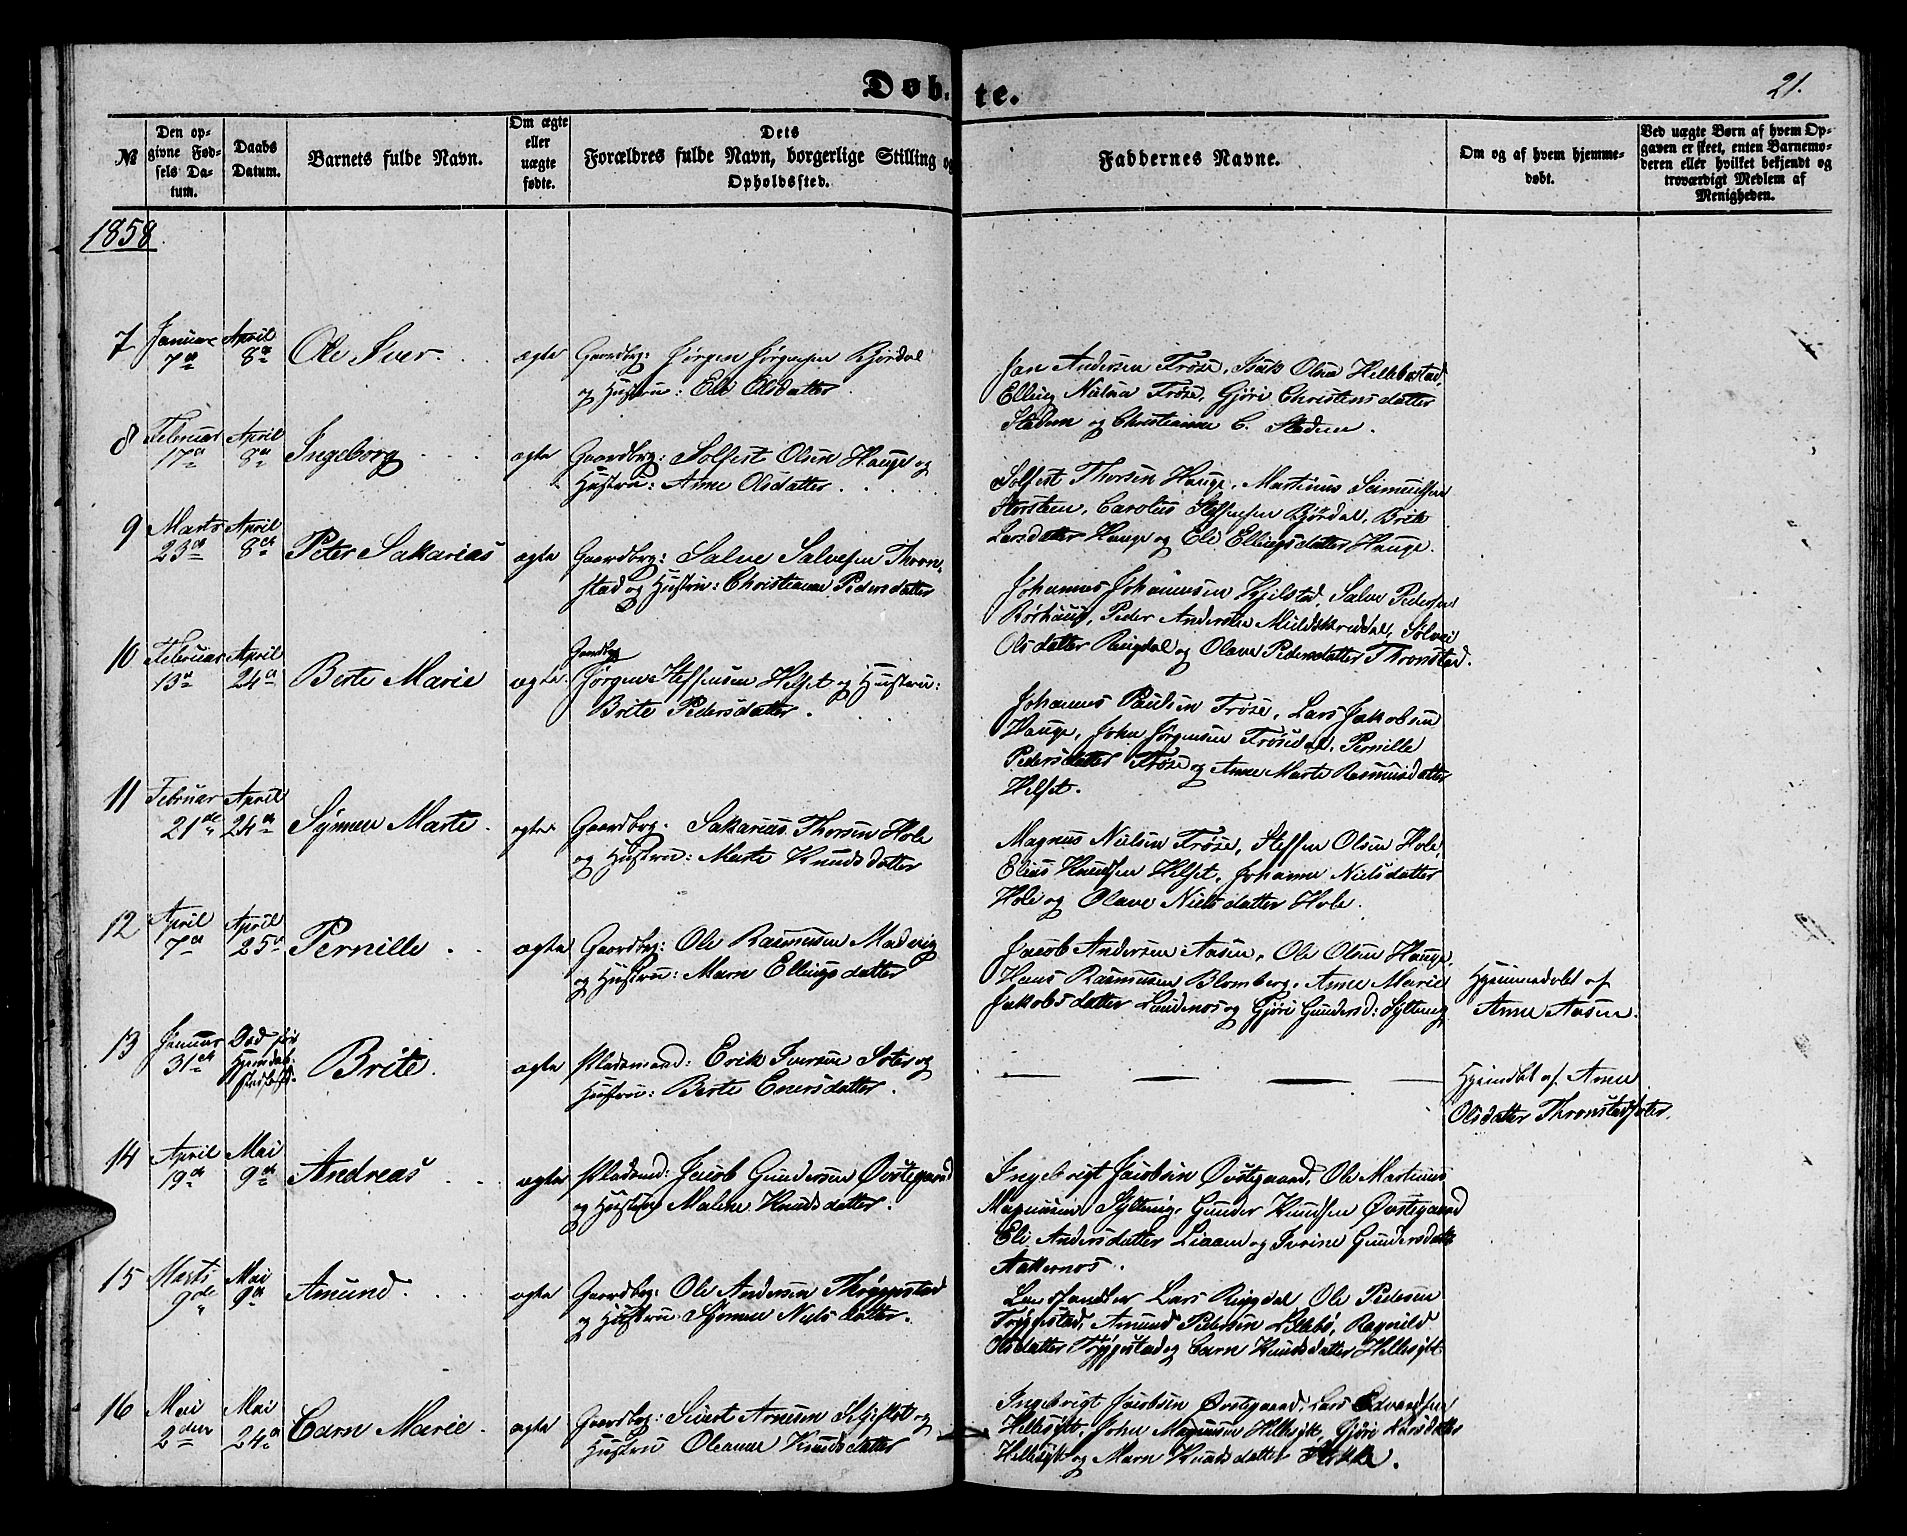 Døbte.
21.
№
Den opgivne Fødsels Datum.
Daabs Datum.
Barnets fulde Navn.
Om ægte eller uægte fødte.
Dets Forældres fulde Navn, borgerlige Stilling og Opholdssted.
Faddernes Navne.
Om og af hvem hjemmedøbt.
Ved uægte Børn af hvem Opgaven er skeet, enten Barnemoderen eller hvilket bekjendt og troværdigt Medlem af Menigheden.
1858.
7 Januar 7de April 8de Ole Iver. ægte Gaardbrg: Jørgen Jørgensen Bjørdal
og Hustru: Eli Olsdatter.
Jon Andersen Frøse, Isak Olsen Hellebostad,
Elling Nielsen Frøse, Gjøri Christensdatter
Stadem og Christianne C. Stadem.
8 Februar 17de April 8de Ingeborg ægte Gaardbrg: Solfest Olsen Hauge og
Hustru: Anne Olsdatter.
Solfest Thorsen Hauge, Martinus Samuelsen
Korsteen, Carolus Steffensen Bjørdal, Brite
Larsdatter Hauge og Eli Ellingsdatter Hauge.
9 Marts 23de April 8de Peter Sakarias ægte Gaardbrg: Salve Salvesen Thron-
stad og Hustru: Christianne Pedersdatter
Johannes Johannesen Kjelstad, Salve Pedersen
Rørhuus, Peder Andersen Muldskreddal, Sølvei
Olsdatter Ringdal og Olave Pedersdatter Thronstad.
10 Februar 13de April 24de Berte Marie ægte Gaardbrg
Jørgen Steffensen Helset og Hustru:
Brite Pedersdatter.
Johannes Paulsen Frøse, Lars Jakobsen
Hauge, John Jørgensen Frøisdal, Pernille
Pedersdatter Frøse og Anne Marte Rasmusdatter
Helset.
11 Februar 21de April 24de Synneu Marte ægte Gaardbrg. Sakarias Thorsen Hole
og Hustru: Marte Knudsdatter
Magnus Nielsen Frøse, Steffen Olsen Hole,
Elias Knudsen Helset, Johanne Nielsdatter
Hole og Olave Nielsdatter Hole.
12 April 7de April 25de Pernille ægte Gaardbrg: Ole Rasmusen Madvig
og Hustru: Marn Ellingsdatter
Jacob Andersen Aasen, Ole Olsen Hauge,
Hans Rasmusen Blomberg, Anne Marie
Jakobsdatter Lundenos og Gjøri Gundersd: Sylteng
Hjemmedøbt af
Anne Aasen.
13 Januar 31te Død før
Brite. ægte Pladsmand: Erik Iversen Sæter og
Hustru: Berte Enersdatter.
Hjemdbt af Anne
Olsdatter Thronstadsæter.
14 April 19de Mai 9de Andreas ægte Pladsmd: Jacob Gundersen Øvstegaard
og Hustru Malene Knudsdatter.
Ingebrigt Jacobsen Øvstegaard, Ole Martinus
Magnusen Sylteng, Gunder Knudsen Øvstegaard
Eli Andersdatter Liaaen og Iverine Gundersdatter
Aakernos.
15 Marts 9de Mai 9de Amund. ægte Gaardbrg: Ole Andersen Thryggestad
og Hustru Synneu Nielsdatter.
Lensmand Lars Ringdal, Ole Pedersen
Tryggestad, Amund Pedersen Lillebø, Ragnild
Olsdatter Tryggestad og Carn Knudsdatter Hellesylt
16 Mai 2den Mai 24de Carn Marie. ægte Gaardbrg: Sivert Arnesen Skjiftet og
Hustru Oleanne Knudsdatter
Ingebrigt Jacobsen Øvstegaard, Lars Edvardsen
Hellesylt, John Magnusen Hellesylt, Gjøri Larsdatter
Hellesylt og Marn Knudsdatter